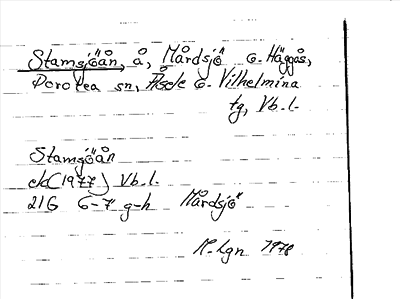 Stamsjöån, å, Mårdsjö o. Häggås,
Dorotea sn, Åsele o. Vilhelmina
tg, Vb. l.
Stamsjöån
ek (1977) Vb. l.
21G 6-7 g-h Mårdsjö
M. Lgn 1978